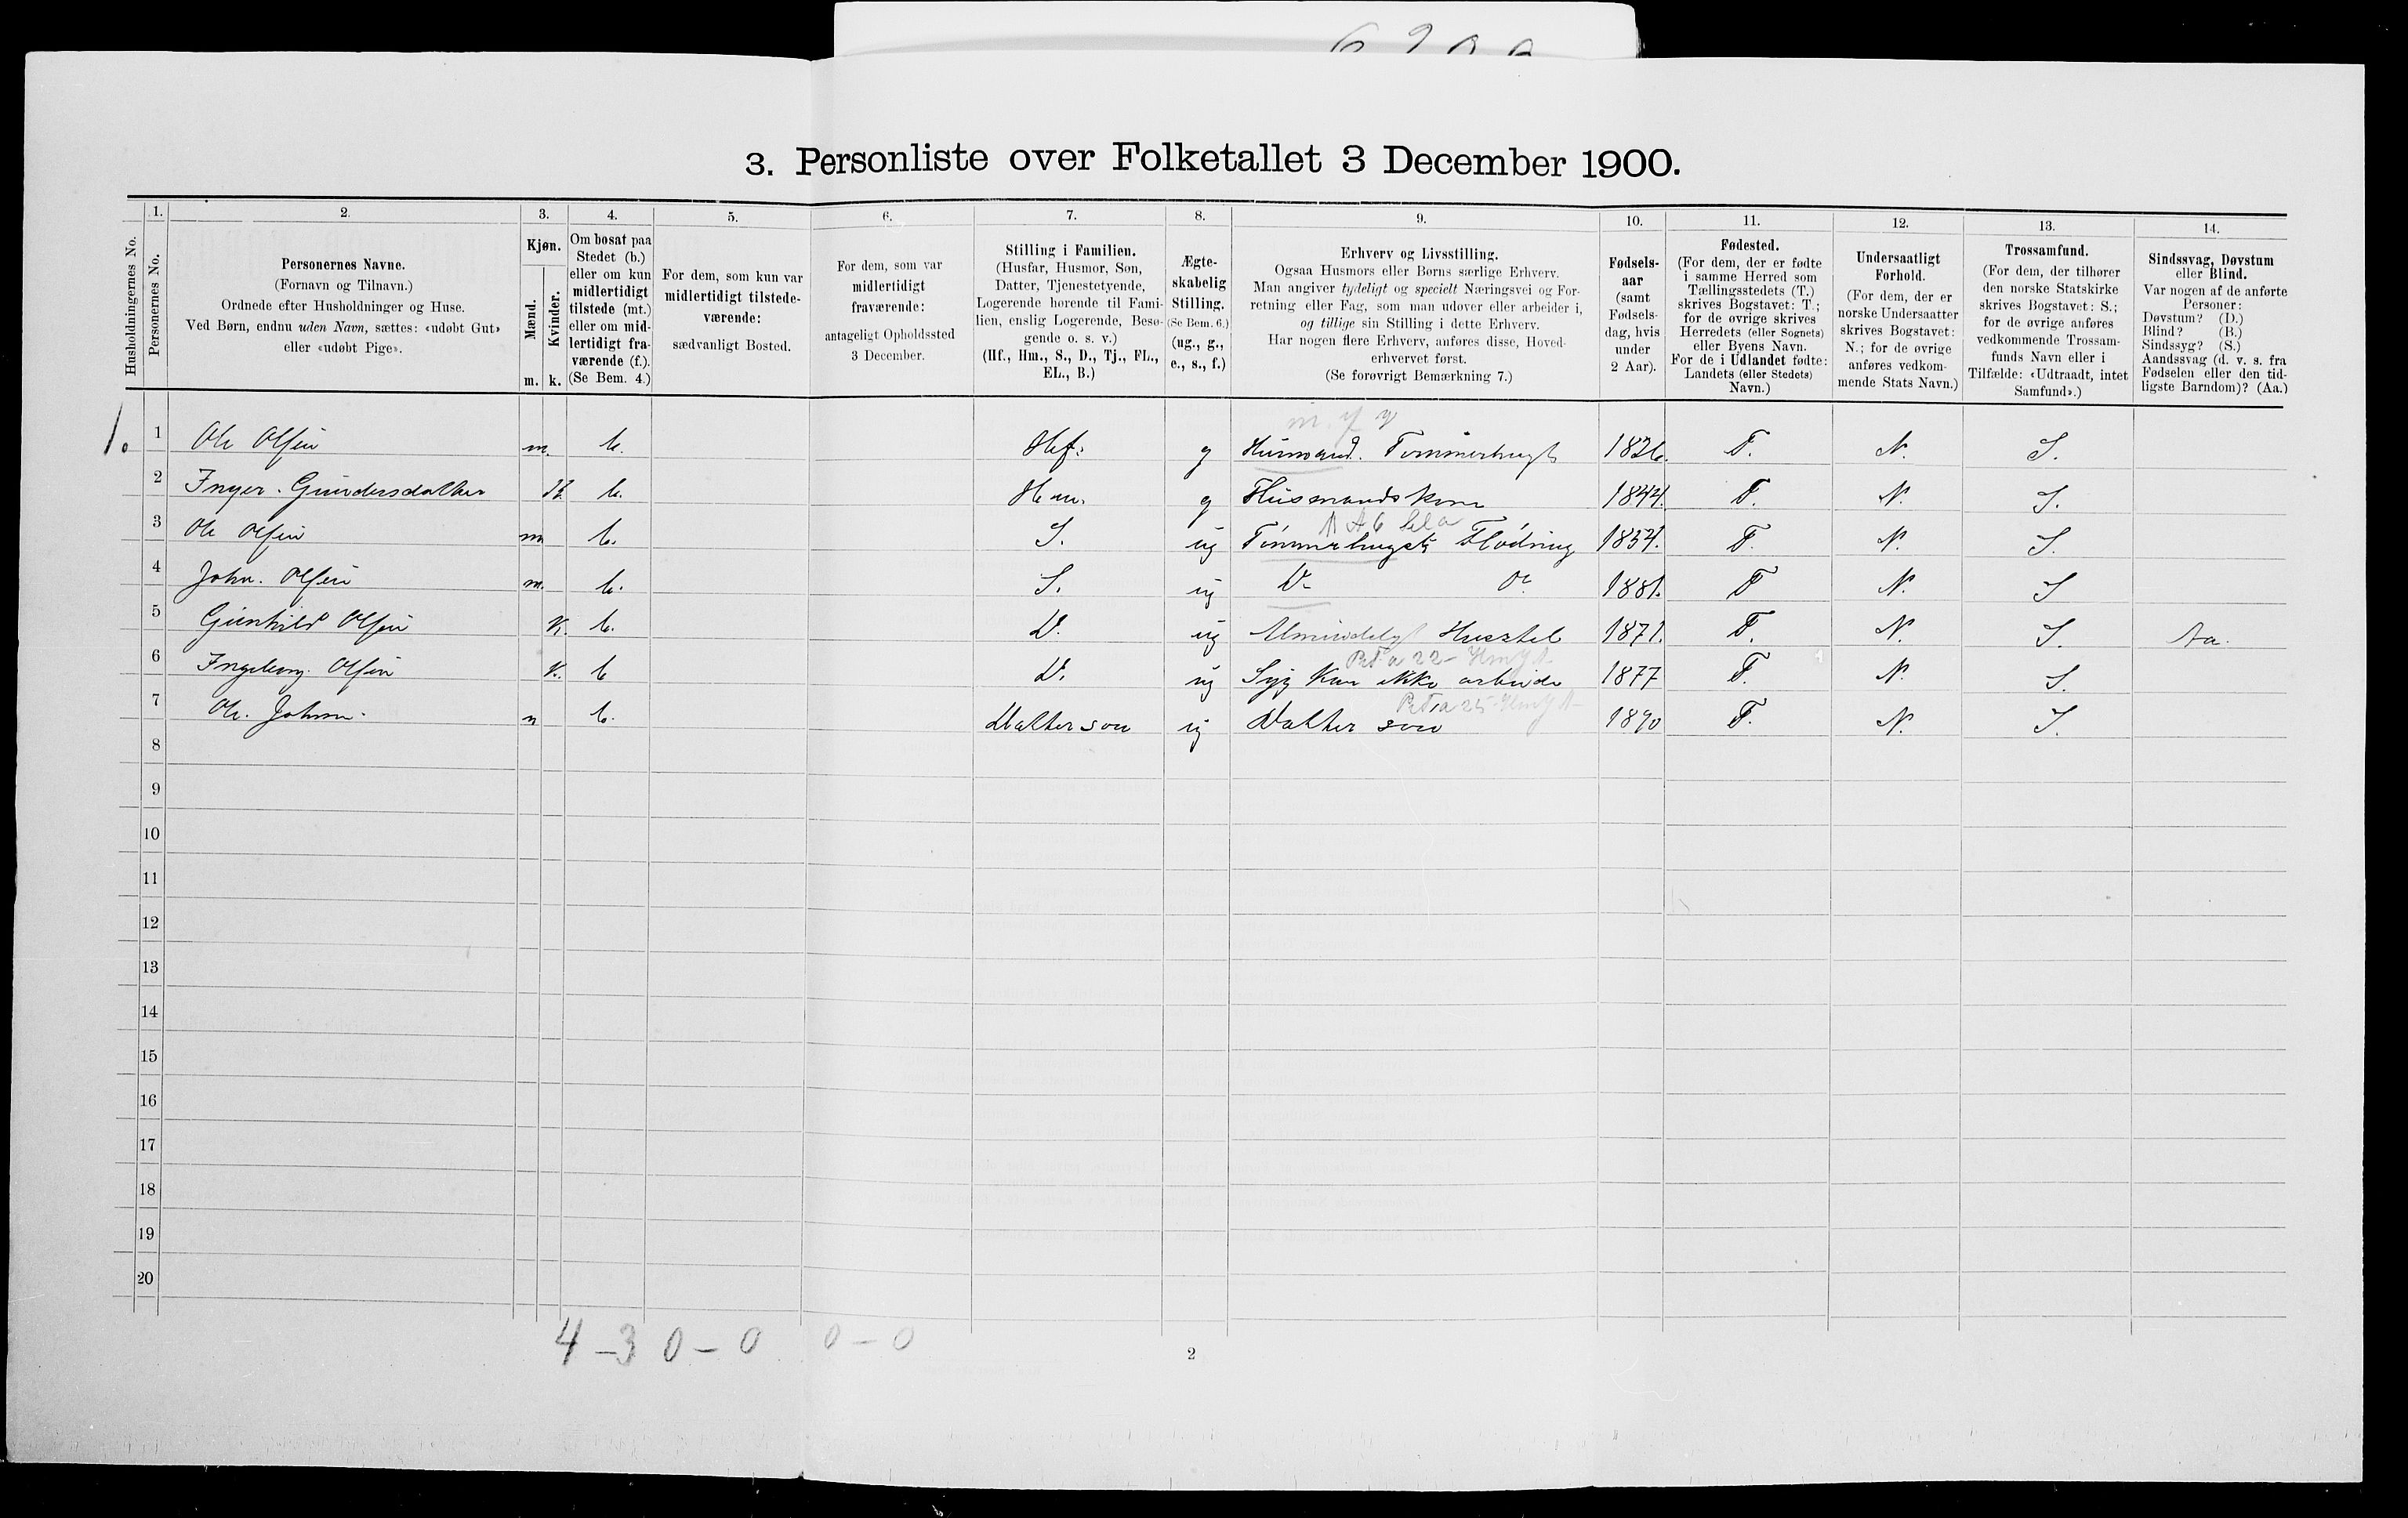 3. Personliste over Folketallet 3 December 1900.
Husholdningernes No.
1. Personernes No.
2.
Personernes Navne.
(Fornavn og Tilnavn.)
Ordnede efter Husholdninger og Huse.
Ved Børn, endnu uden Navn, sættes: «udøbt Gut»
eller «udøbt Pige».
3.
Kjøn.
Mænd. Kvinder.
m. k.
4.
Om bosat paa
Stedet (b.)
eller om kun
midlertidigt
tilstede (mt.)
eller om mid-
lertidigt fra-
værende (f.).
(Se Bem. 4.)
5.
For dem, som kun var
midlertidigt tilstede-
værende:
sædvanligt Bosted.
6.
For dem, som var
midlertidigt
fraværende:
antageligt Opholdssted
3 December.
7.
Stilling i Familien.
(Husfar, Husmor, Søn,
Datter, Tjenestetyende,
Logerende hørende til Fami-
lien, enslig Logerende, Besø-
gende o. s. v.)
(Hf., Hm., S., D., Tj., FL.,
EL., B.)
8.
Ægte-
skabelig
Stilling.
(Se Bem. 6.)
(ug., g.,
e., s., f.)
9.
Erhverv og Livsstilling.
Ogsaa Husmors eller Børns særlige Erhverv.
Man angiver tydeligt og specielt Næringsvei og For-
retning eller Fag, som man udøver eller arbeider i,
og tillige sin Stilling i dette Erhverv.
Har nogen flere Erhverv, anføres disse, Hoved-
erhvervet først.
(Se forøvrigt Bemærkning 7.)
10.
Fødsels-
aar
(samt
Fødsels-
dag, hvis
under
2 Aar).
11.
Fødested.
(For dem, der er fødte
i samme Herred som
Tællingsstedets (T.)
skrives Bogstavet: T.;
for de øvrige skrives
Herredets (eller Sognets)
eller Byens Navn.
For de i Udlandet fødte:
Landets (eller Stedets)
Navn.)
12.
Undersaatligt
Forhold.
(For dem, der er
norske Undersaatter
skrives Bogstavet:
N.; for de øvrige
anføres vedkom-
mende Stats Navn.)
13.
Trossamfund.
(For dem, der tilhører
den norske Statskirke
skrives Bogstavet: S.;
for de øvrige anføres
vedkommende Trossam-
funds Navn eller i
Tilfælde: «Udtraadt, intet
Samfund».)
14.
Sindssvag, Døvstum
eller Blind.
Var nogen af de anførte
Personer:
Døvstum? (D.)
Blind? (B.)
Sindssyg? (S.)
Aandssvag (d. v. s. fra
Fødselen eller den tid-
ligste Barndom)? (Aa.)
1. 1 Ole Olsen m. b. Hf. g Husmand. Tømmerhugst 1826. T. N. S.
2 Inger. Gundersdatter K. b. Hm. g Husmandskone 1844. T. N. S.
3 Ole Olsen m b. S. ug Tømmerhugst Flødning T. N. S.
4 John. Olsen m. b. S. ug Do Do 1881. T N. S
5 Gunhild Olsen K. b. D. ug Almindeligt Husstel 1871. T. N. S. Aa.
6 Ingeborg Olsen K. b D. ug Syg kan ikke arbeide 1877 T. N. S.
7 Ole. Johnsen m b. Datter søn ug Datter søn 1890 T. N. S.
8
9
10
11
12
13
14
15
16
17
18
19
20
4 - 3 0 - 0 0 - 0
2